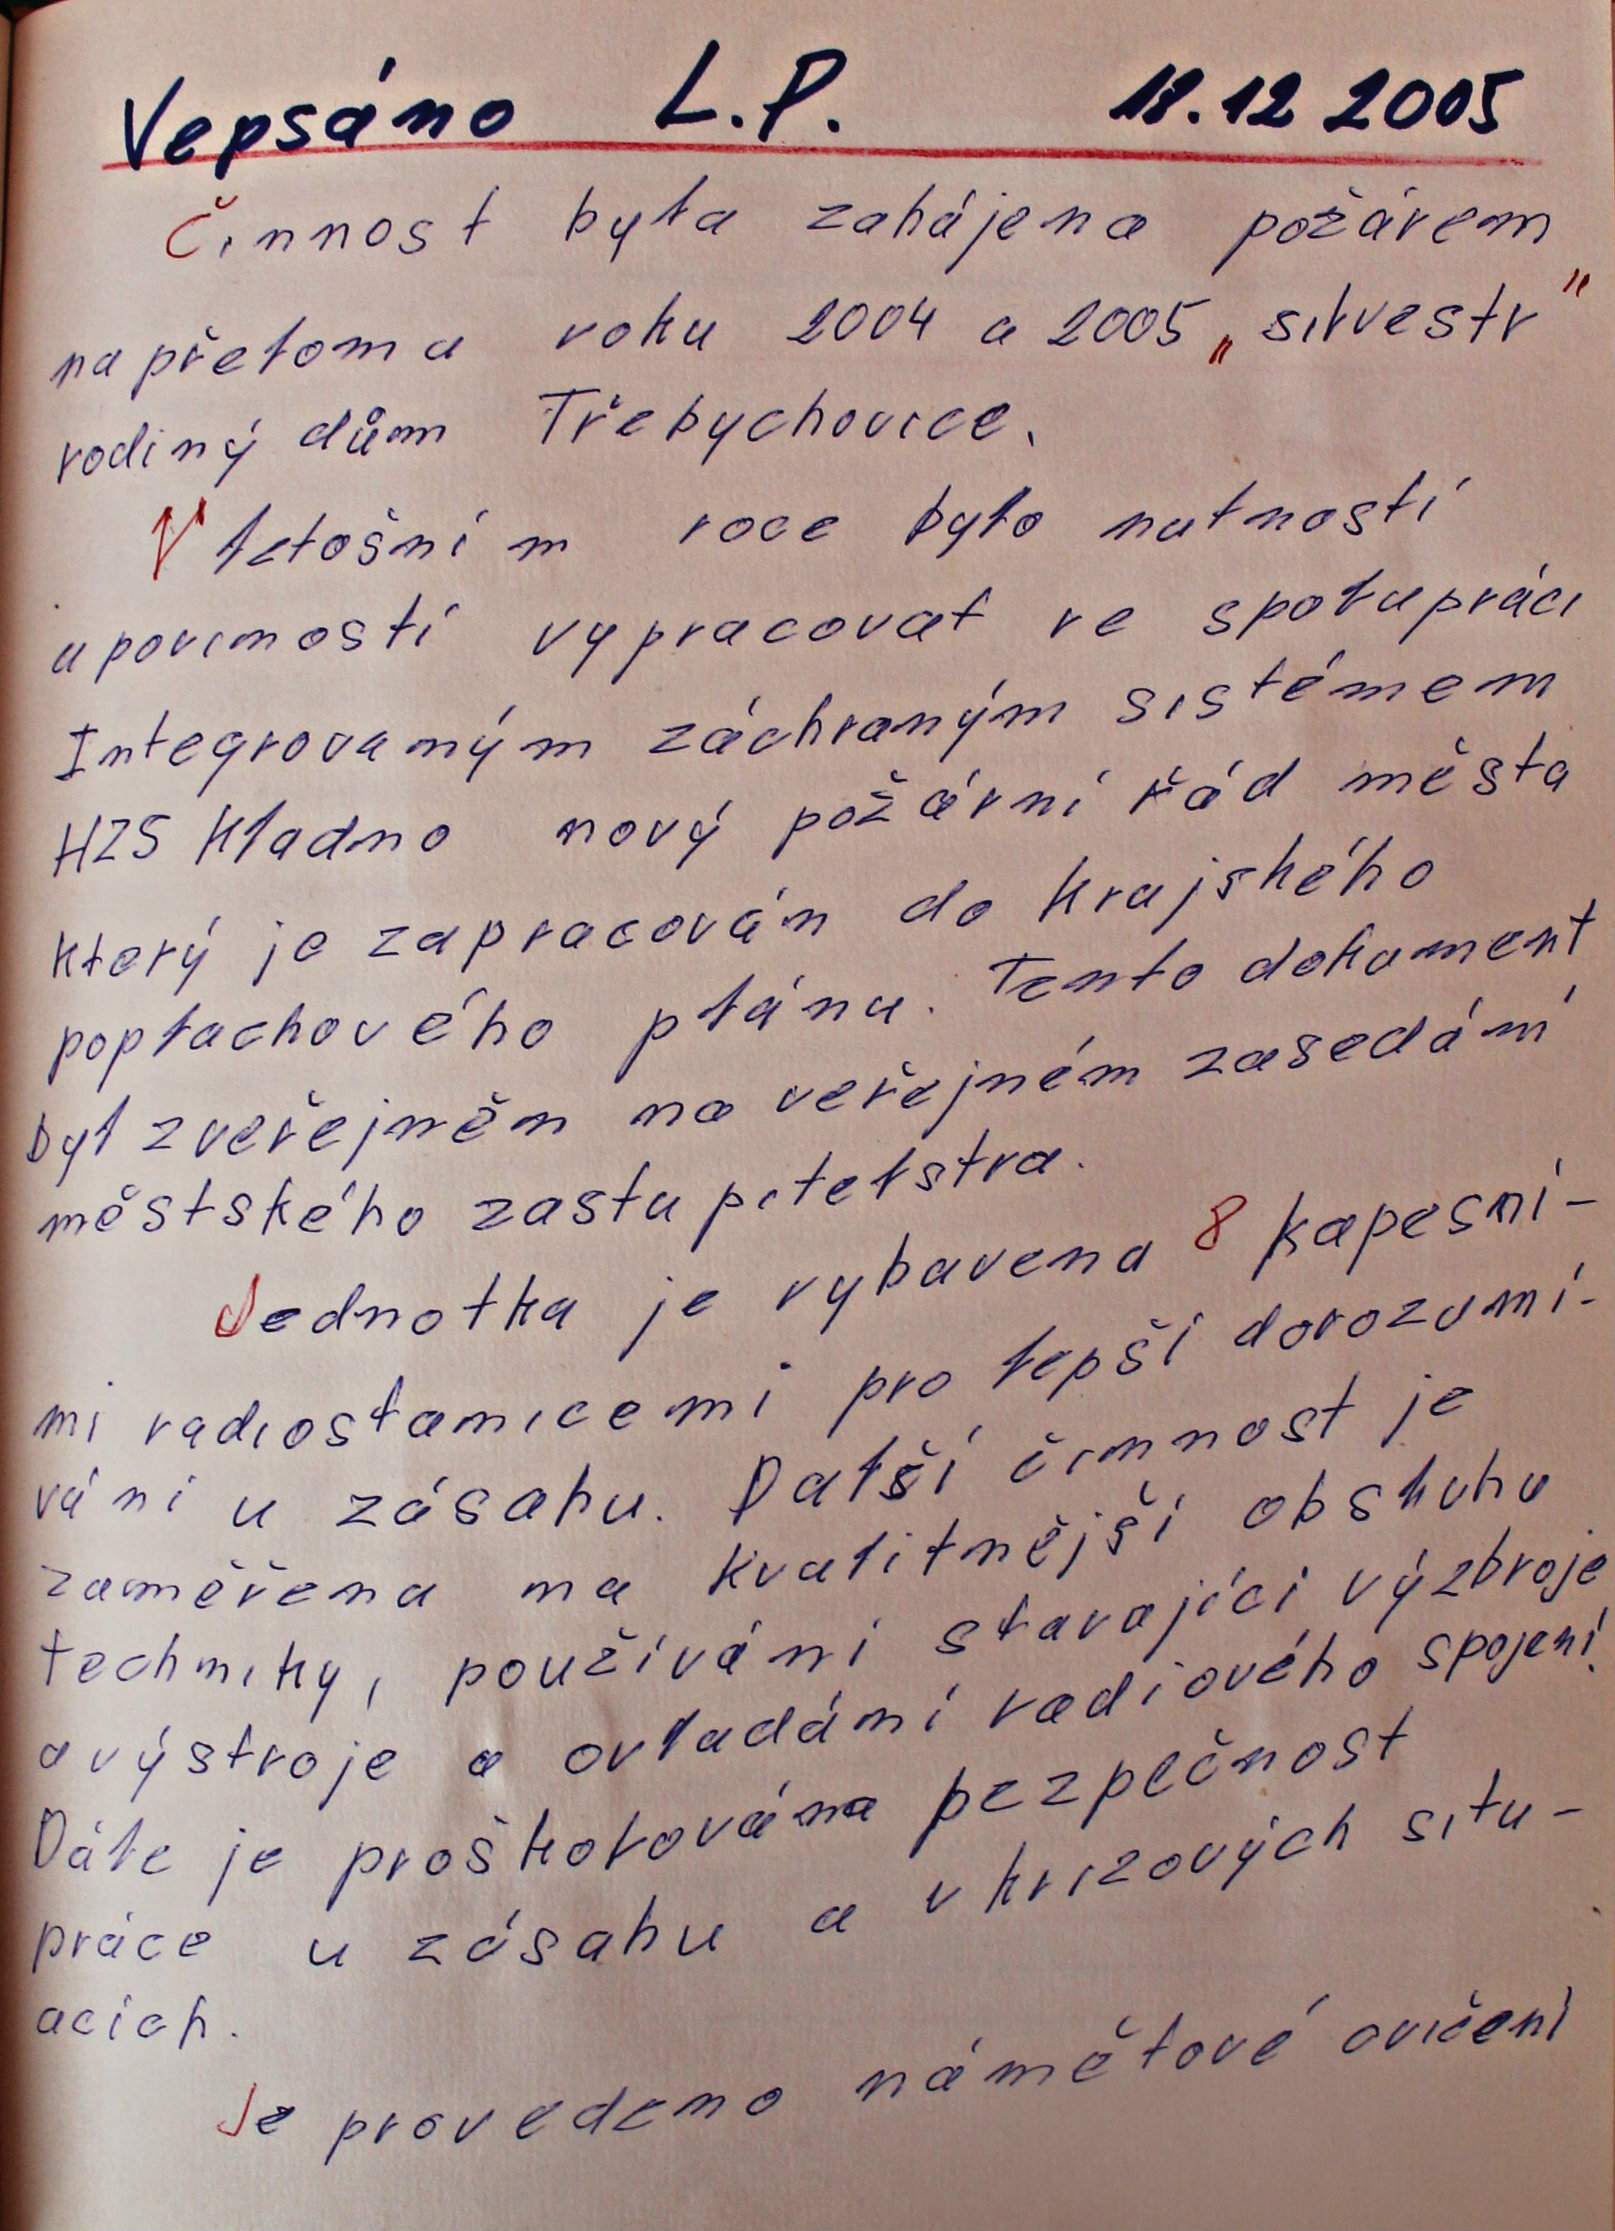 Vepsáno L.P. 18.12 2005
Činnost byla zahájena požárem
na přelomu roku 2004 a 2005 „silvestr"
rodiný dům Třebychovice.
V letošním roce bylo nutností
a poviností vypracovat ve spolupráci
Integrovaným záchraným sistémem
HZS Kladno nový požární řád města
který je zapracován do krajského
poplachového plánu. Tento dokument
byl zveřejněn na veřejném zasedání
městského zastupitelstva.
Jednotka je vybavena 8 kapesní-
mi radiostanicemi pro lepší dorozumí-
vání u zásahu. Další činnost je
zaměřena na kvalitnější obsluhu
techniky, používání stavající výzbroje
a výstroje a ovladání radiového spojení.
Dále je proškolována bezpečnost
práce u zásahu a v krizových situ-
acích.
Je provedeno námětové cvičení